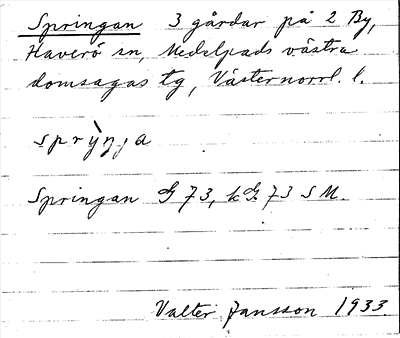 Springan 3 gårdar på 2 By,
Haverö sn, Medelpads västra
domsagas tg, Västernorrl. l.
sprỳŋja
Springan G 73, kG. 73 S M.
Valter Jansson 1933.